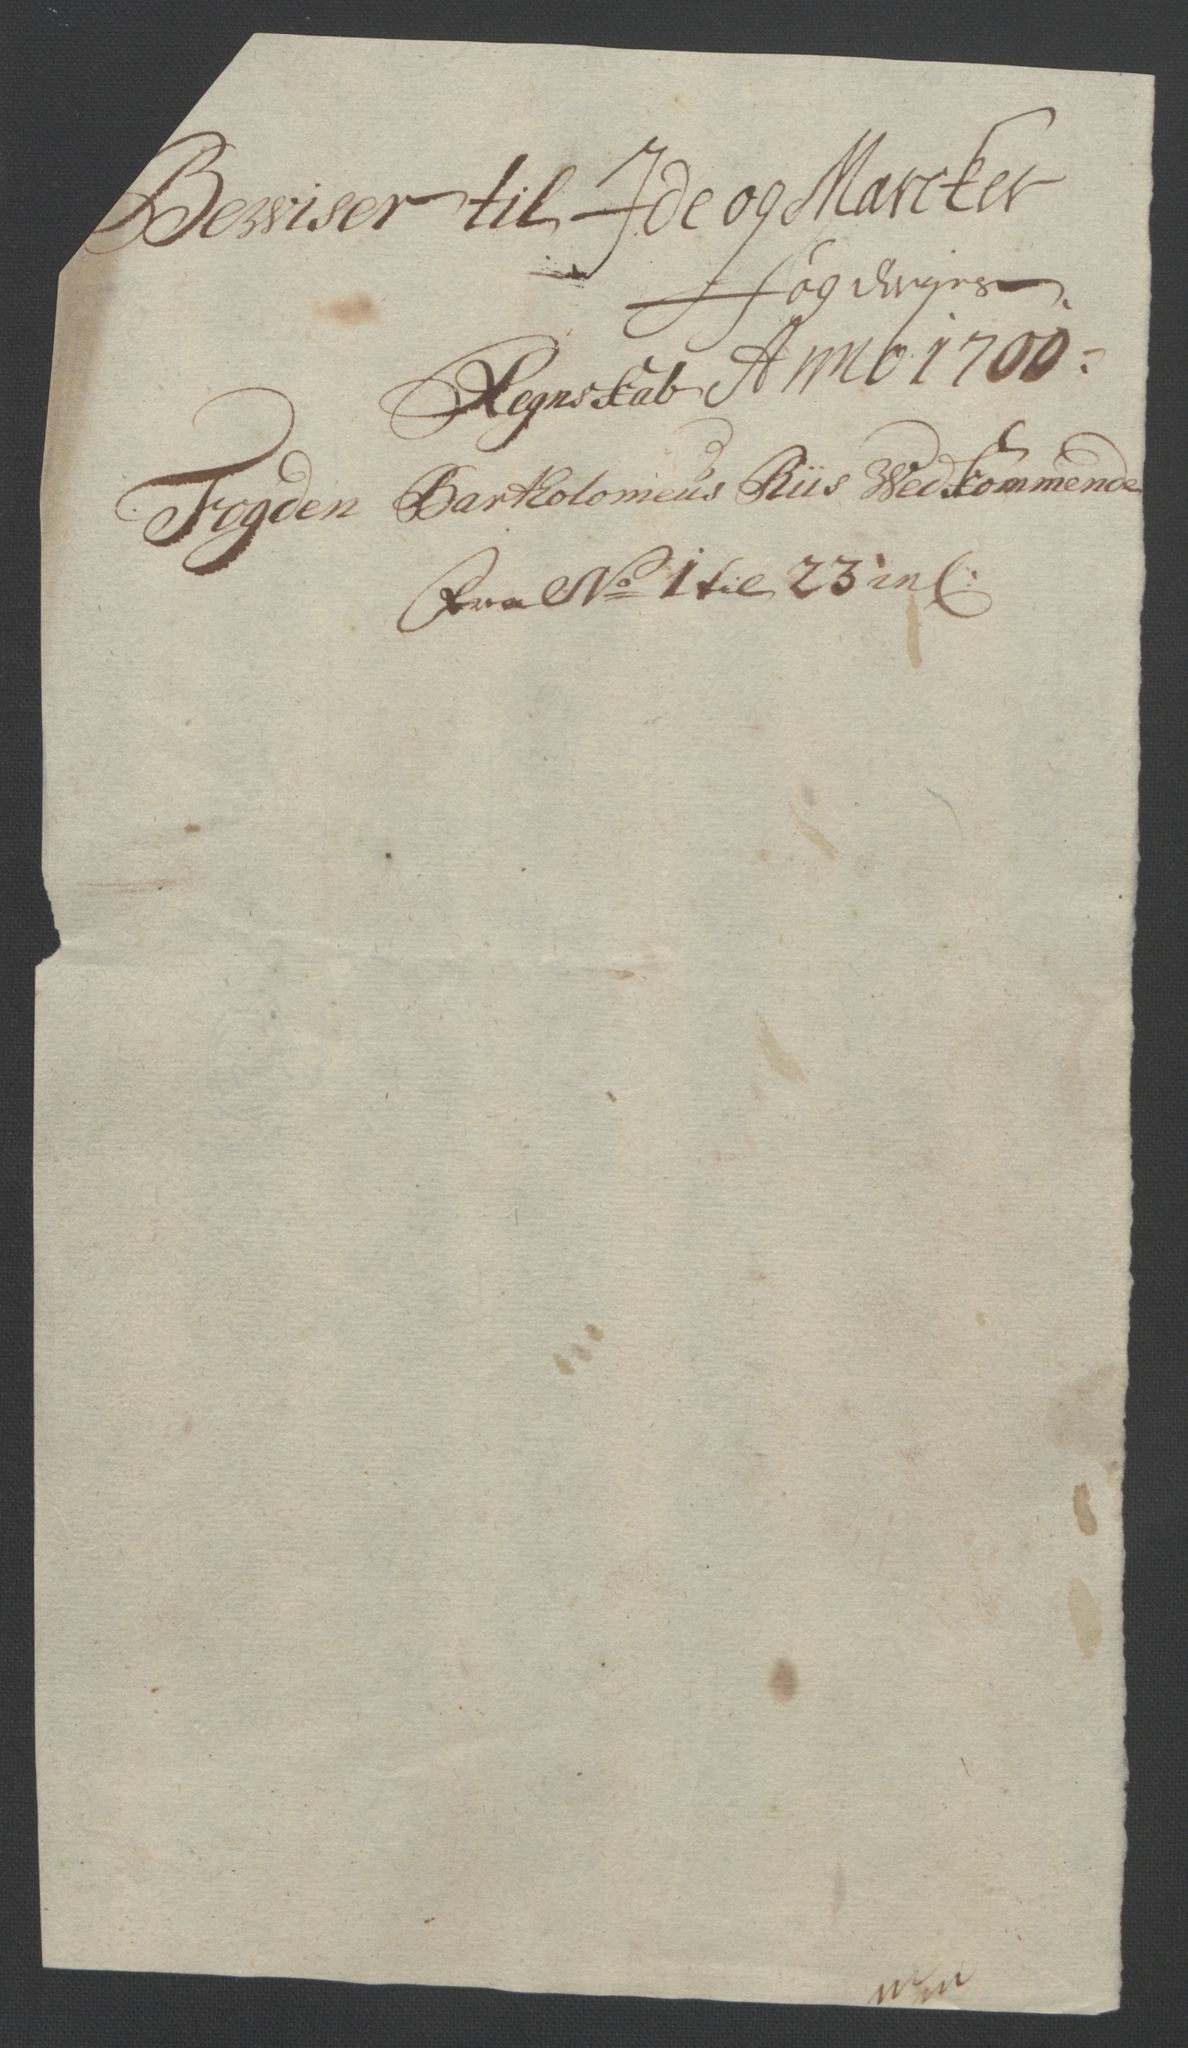 Bewiser til Ide og Marcker
fogderjes
Regnskab Anno 1700:
Fogden Bartholomeus Riis Wedkommende
fra No 1 til 23 incl: